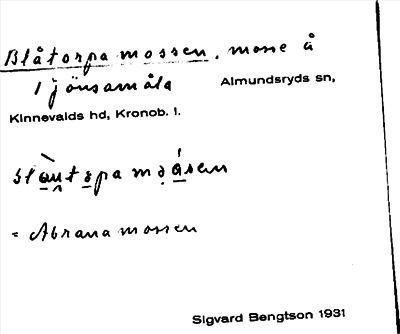 Blåtorpa mossen, mosse å
Ijönsamåla Almundsryds sn,
Kinnevalds hd, Kronob. l.
= Abrana mossen
Sigvard Bengtson 1931